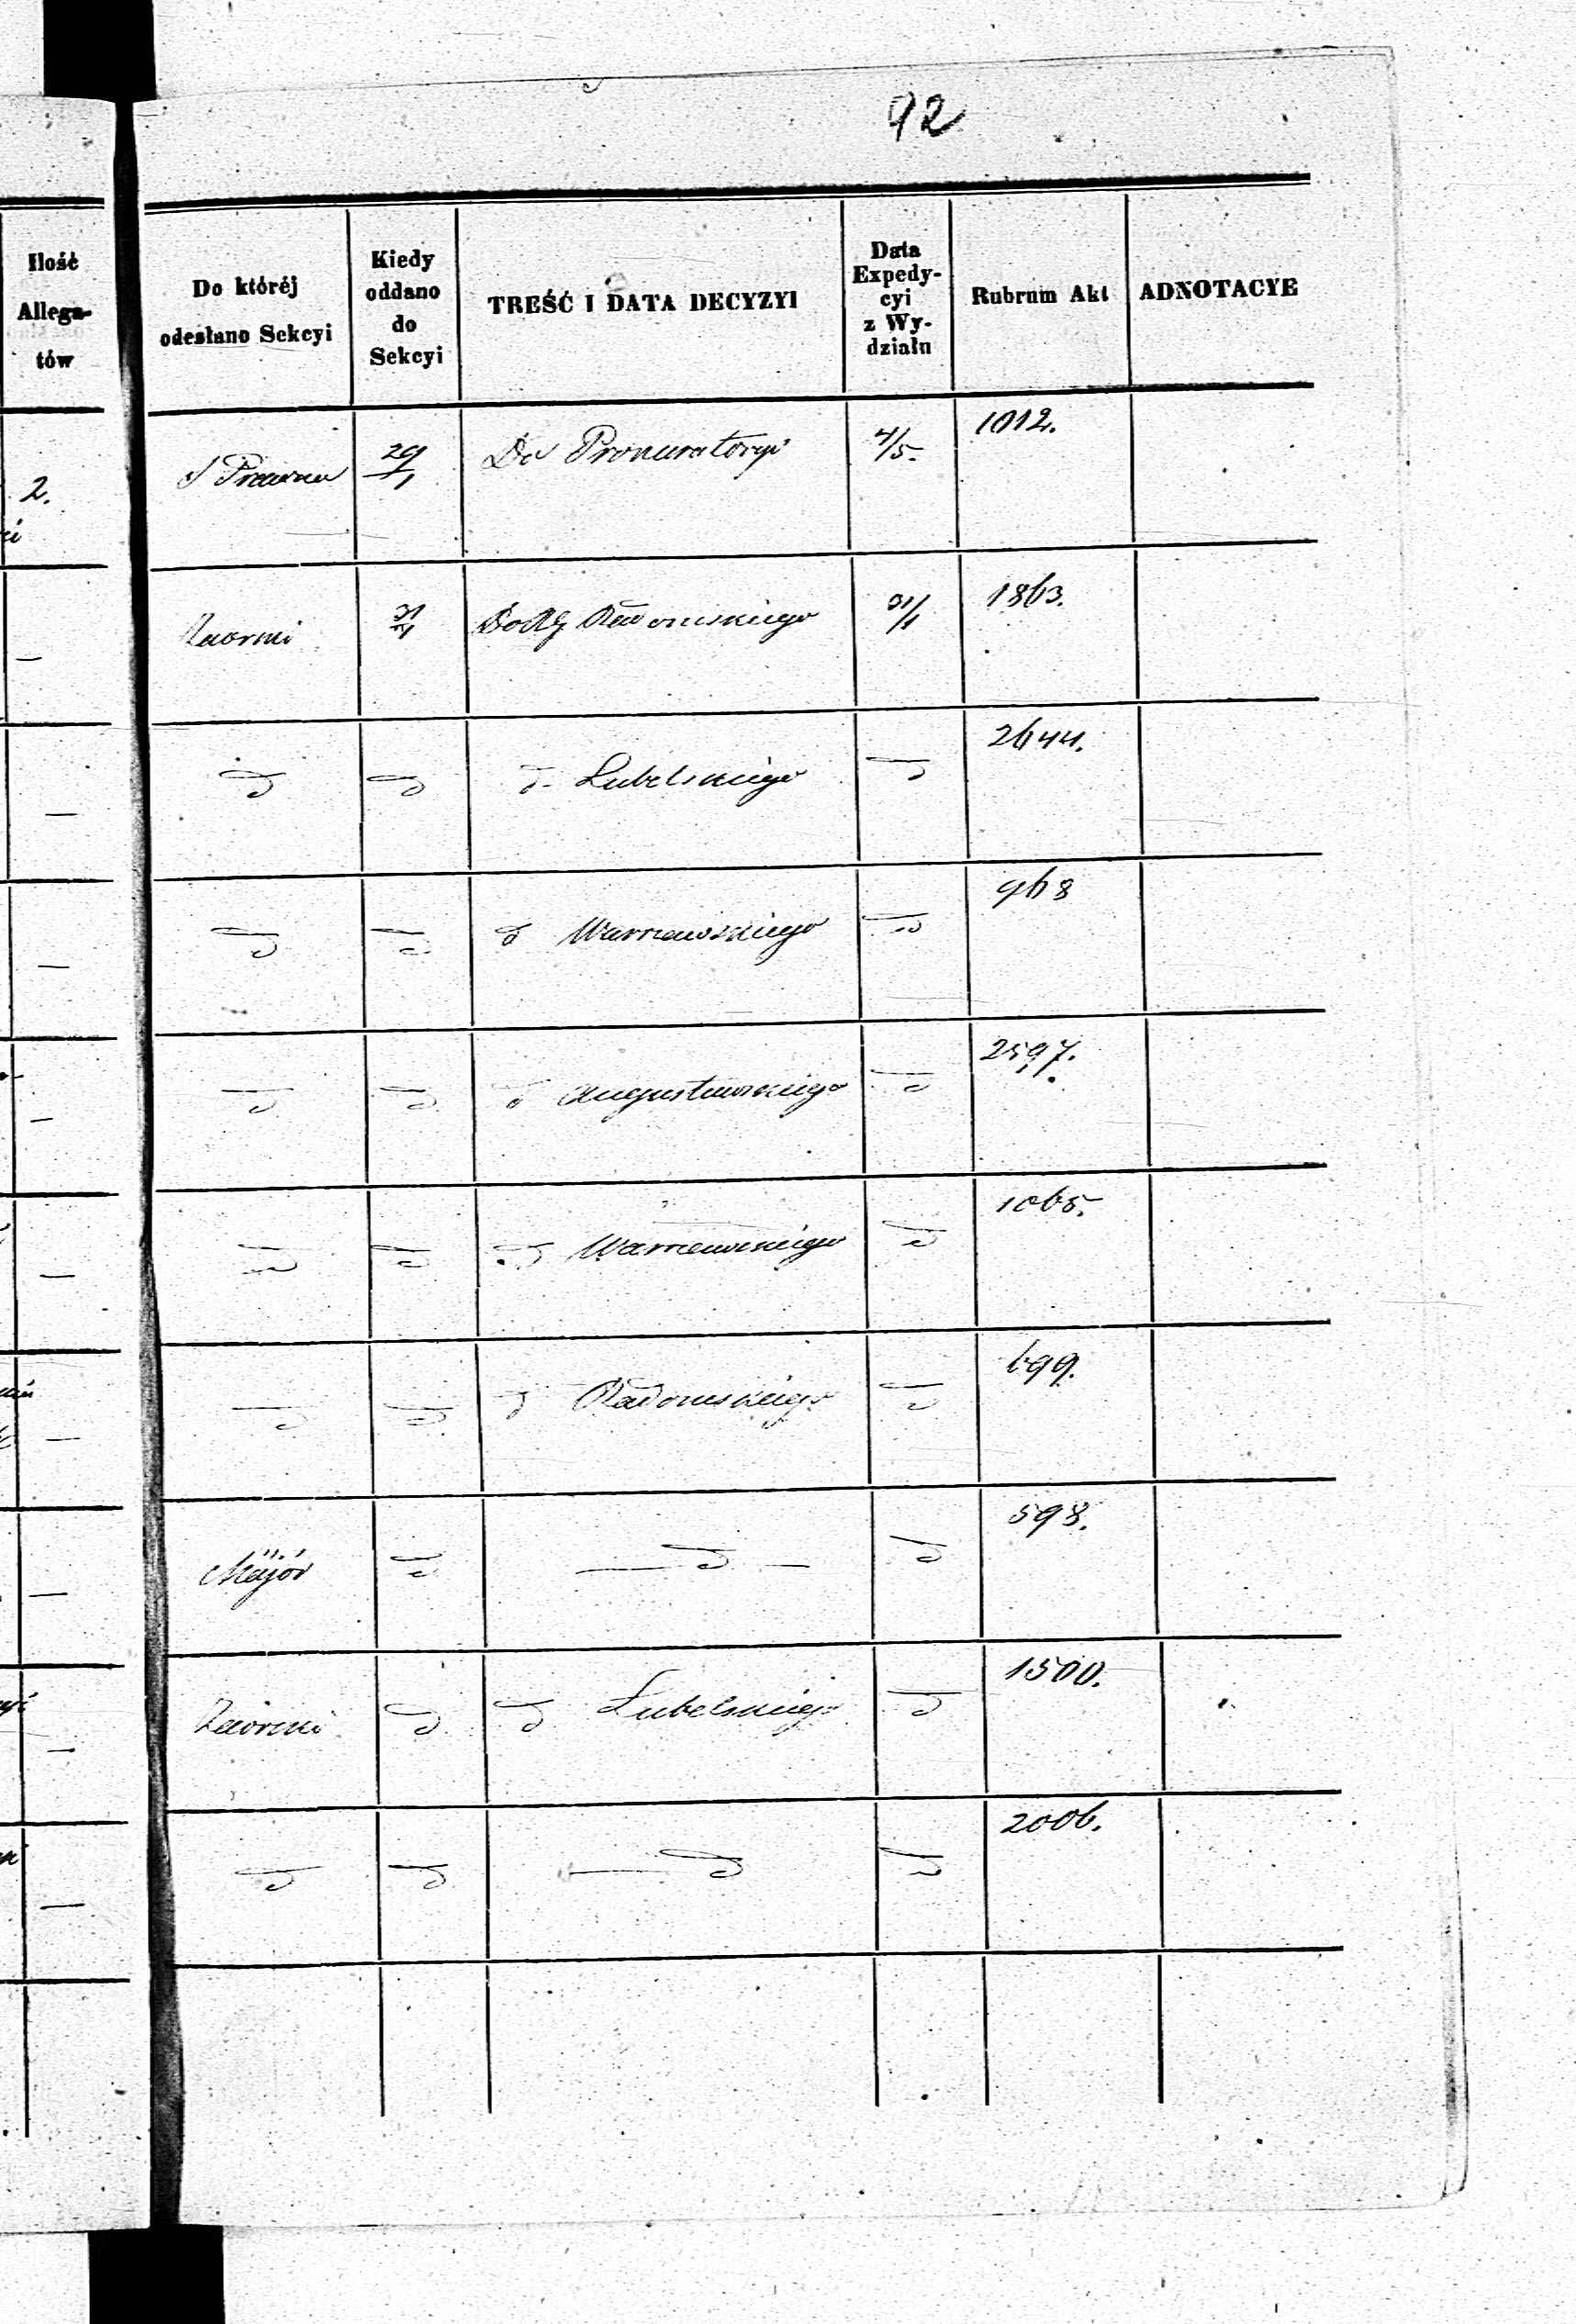 92
Ilość Allega- tów
Do któréj odesłano Sekcyi
Kiedy oddano do Sekcyi
TREŚĆ I DATA DECYZYI
Data Expedy- cyi z Wy- działu
Rubrum Akt
ADNOTACYE
2. S Prawna 29/1 Do Prokuratoryi 4/5. 1012.
— 31/1 Do RG Radomskiego 31/1 1863.
— d d d Lubelskiego d 2644.
— d d d Warszawskiego d 968
— d d d Augustowskiego d 2597.
— d d d Warszawskiego d 1065.
— d d d Radomskiego d 699.
— Major d — d — d 598.
— d d Lubelskiego d 1500.
— d d — d d 2006.